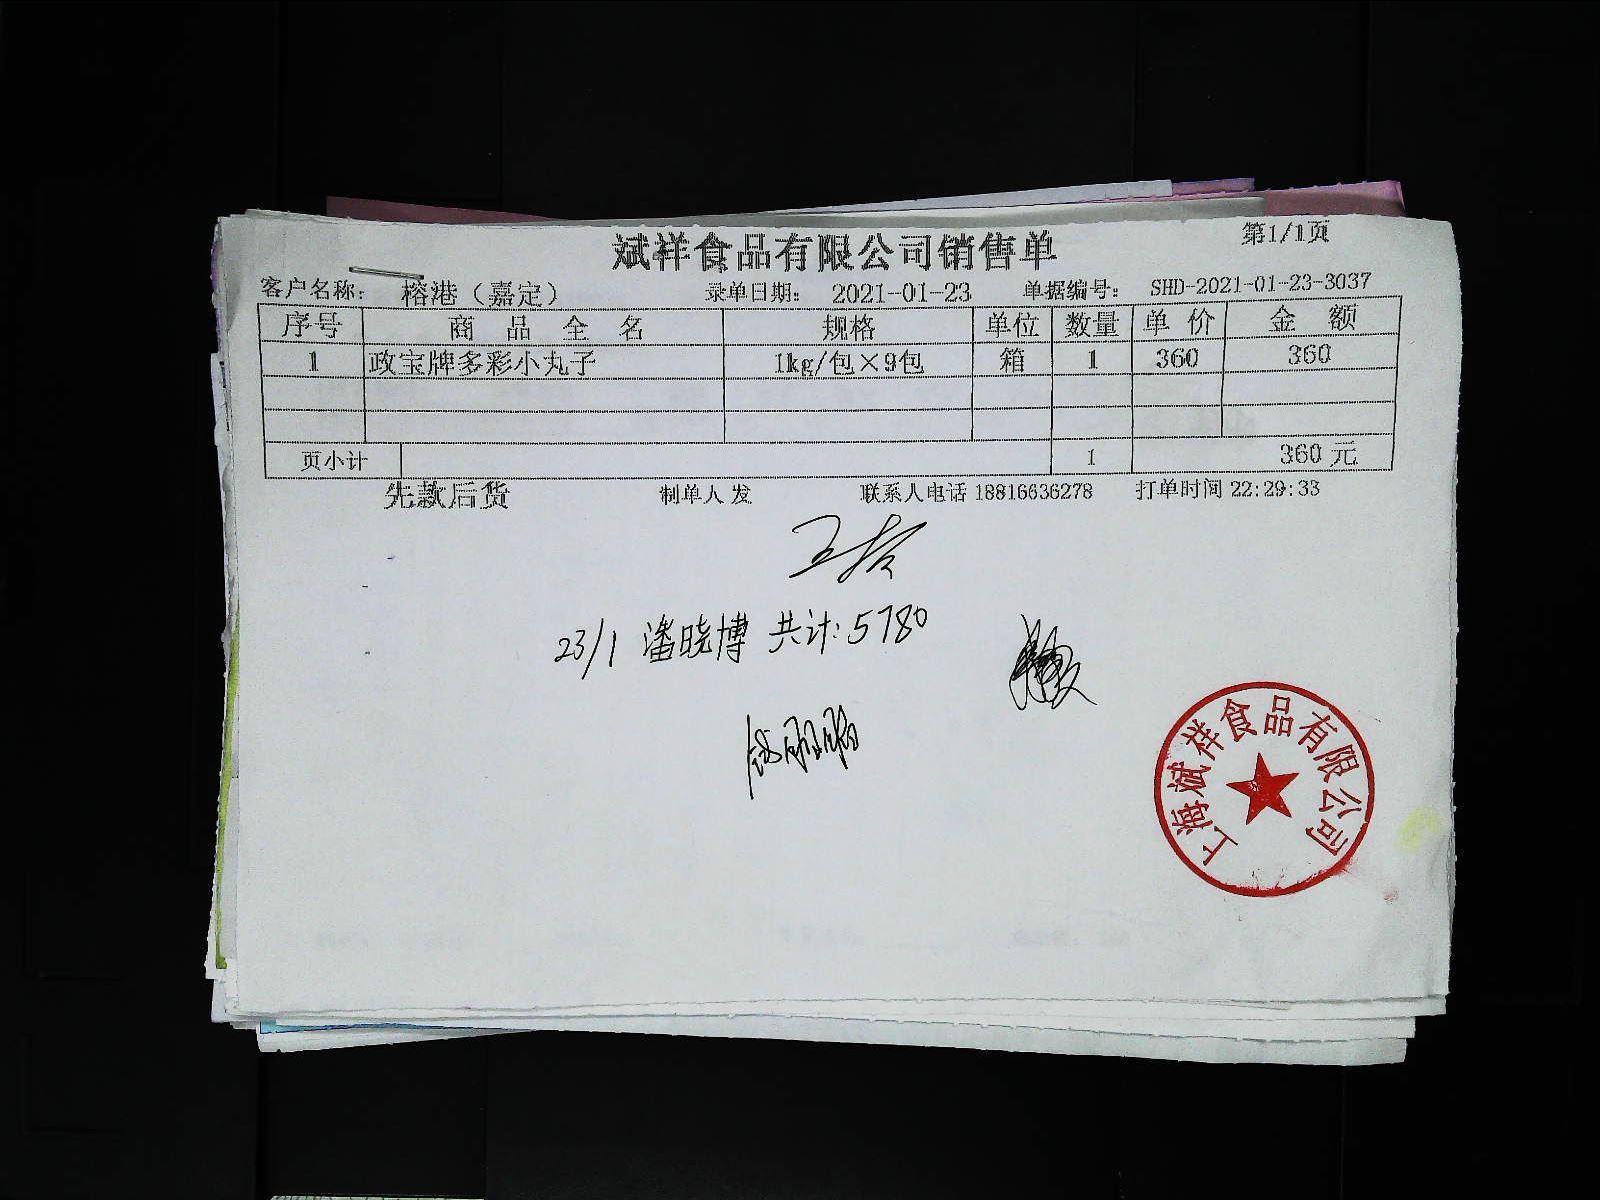 斌祥食品有限公司销售单
第1/1页
客户名称： 榕港（嘉定） 录单日期： 2021-01-23 单据编号： SHD-2021-01-23-3037
序号 商品全名 规格 单位 数量 单价 金额
1 政宝牌多彩小丸子 1kg/包×9包 箱 1 360 360
页小计 1 360 元
先款后货 制单人 发 联系人电话 18816636278 打单时间 22:29:33
23/1 潘晓博 共计：5780
上海斌祥食品有限公司